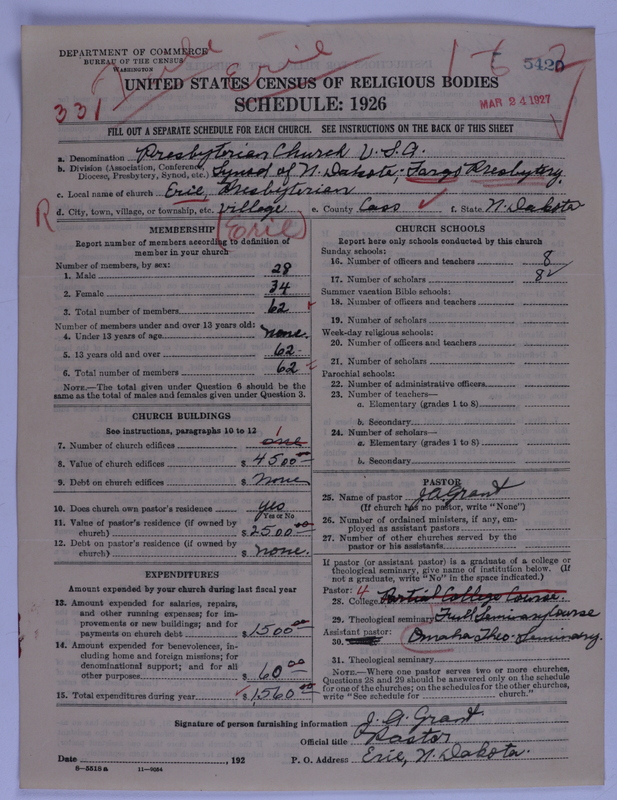 DEPARTMENT OF COMMERCE
BUREAU OF THE CENSUS
WASHINGTON
Erie
1-6 2
5420
331
UNITED STATES CENSUS OF RELIGIOUS BODIES
SCHEDULE: 1926
MAR 24 1927
FILL OUT A SEPARATE SCHEDULE FOR EACH CHURCH. SEE INSTRUCTIONS ON THE BACK OF THIS SHEET
a. Denomination Presbyterian Church U.S.A.
b. Division (Association, Conference, Diocese, Presbytery, Synod, etc.) Synod of N. Dakota. Fargo Presbytery.
c. Local name of church Erie, Presbyterian
R d. City, town, village, or township, etc. village e. County Cass f. State N. Dakota
(Erie)
MEMBERSHIP
Report number of members according to definition of
member in your church
Number of members, by sex:
1. Male 28
2. Female 34
3. Total number of members 62
Number of members under and over 13 years old:
4. Under 13 years of age none.
5. 13 years old and over 62.
6. Total number of members 62
NOTE.—The total given under Question 6 should be the
same as the total of males and females given under Question 3.
CHURCH BUILDINGS
See instructions, paragraphs 10 to 12
7. Number of church edifices one 1
8. Value of church edifices $ 4500 00
9. Debt on church edifices $ None
10. Does church own pastor's residence yes
Yes or No
11. Value of pastor's residence (if owned by
church) $ 2500 00
12. Debt on pastor's residence (if owned by
church) $ none.
EXPENDITURES
Amount expended by your church during last fiscal year
13. Amount expended for salaries, repairs,
and other running expenses; for im-
provements or new buildings; and for
payments on church debt $ 1500 00
14. Amount expended for benevolences, in-
cluding home and foreign missions; for
denominational support; and for all
other purposes $ 60 00
15. Total expenditures during year $ 1560 00
CHURCH SCHOOLS
Report here only schools conducted by this church
Sunday schools:
16. Number of officers and teachers 8
17. Number of scholars 82
Summer vacation Bible schools:
18. Number of officers and teachers
19. Number of scholars
Week-day religious schools:
20. Number of officers and teachers
21. Number of scholars
Parochial schools:
22. Number of administrative officers
23. Number of teachers—
a. Elementary (grades 1 to 8)
b. Secondary
24. Number of scholars—
a. Elementary (grades 1 to 8)
b. Secondary
PASTOR
25. Name of pastor J.A. Grant
(If church has no pastor, write "None")
26. Number of ordained ministers, if any, em-
ployed as assistant pastors
27. Number of other churches served by the
pastor or his assistants
If pastor (or assistant pastor) is a graduate of a college or
theological seminary, give name of institution below. (If
not a graduate, write "No" in the space indicated.)
Pastor: 4
28. College Partial College Course
29. Theological seminary Full Seminary Course
Assistant pastor: Omaha Theo. Seminary.
30.
31. Theological seminary
NOTE.—Where one pastor serves two or more churches,
Questions 28 and 29 should be answered only on the schedule
for one of the churches; on the schedules for the other churches,
write "See schedule for church."
Signature of person furnishing information J. A. Grant
Official title Pastor
Date , 192 P. O. Address Erie, N. Dakota.
6-5518 a 11-9034